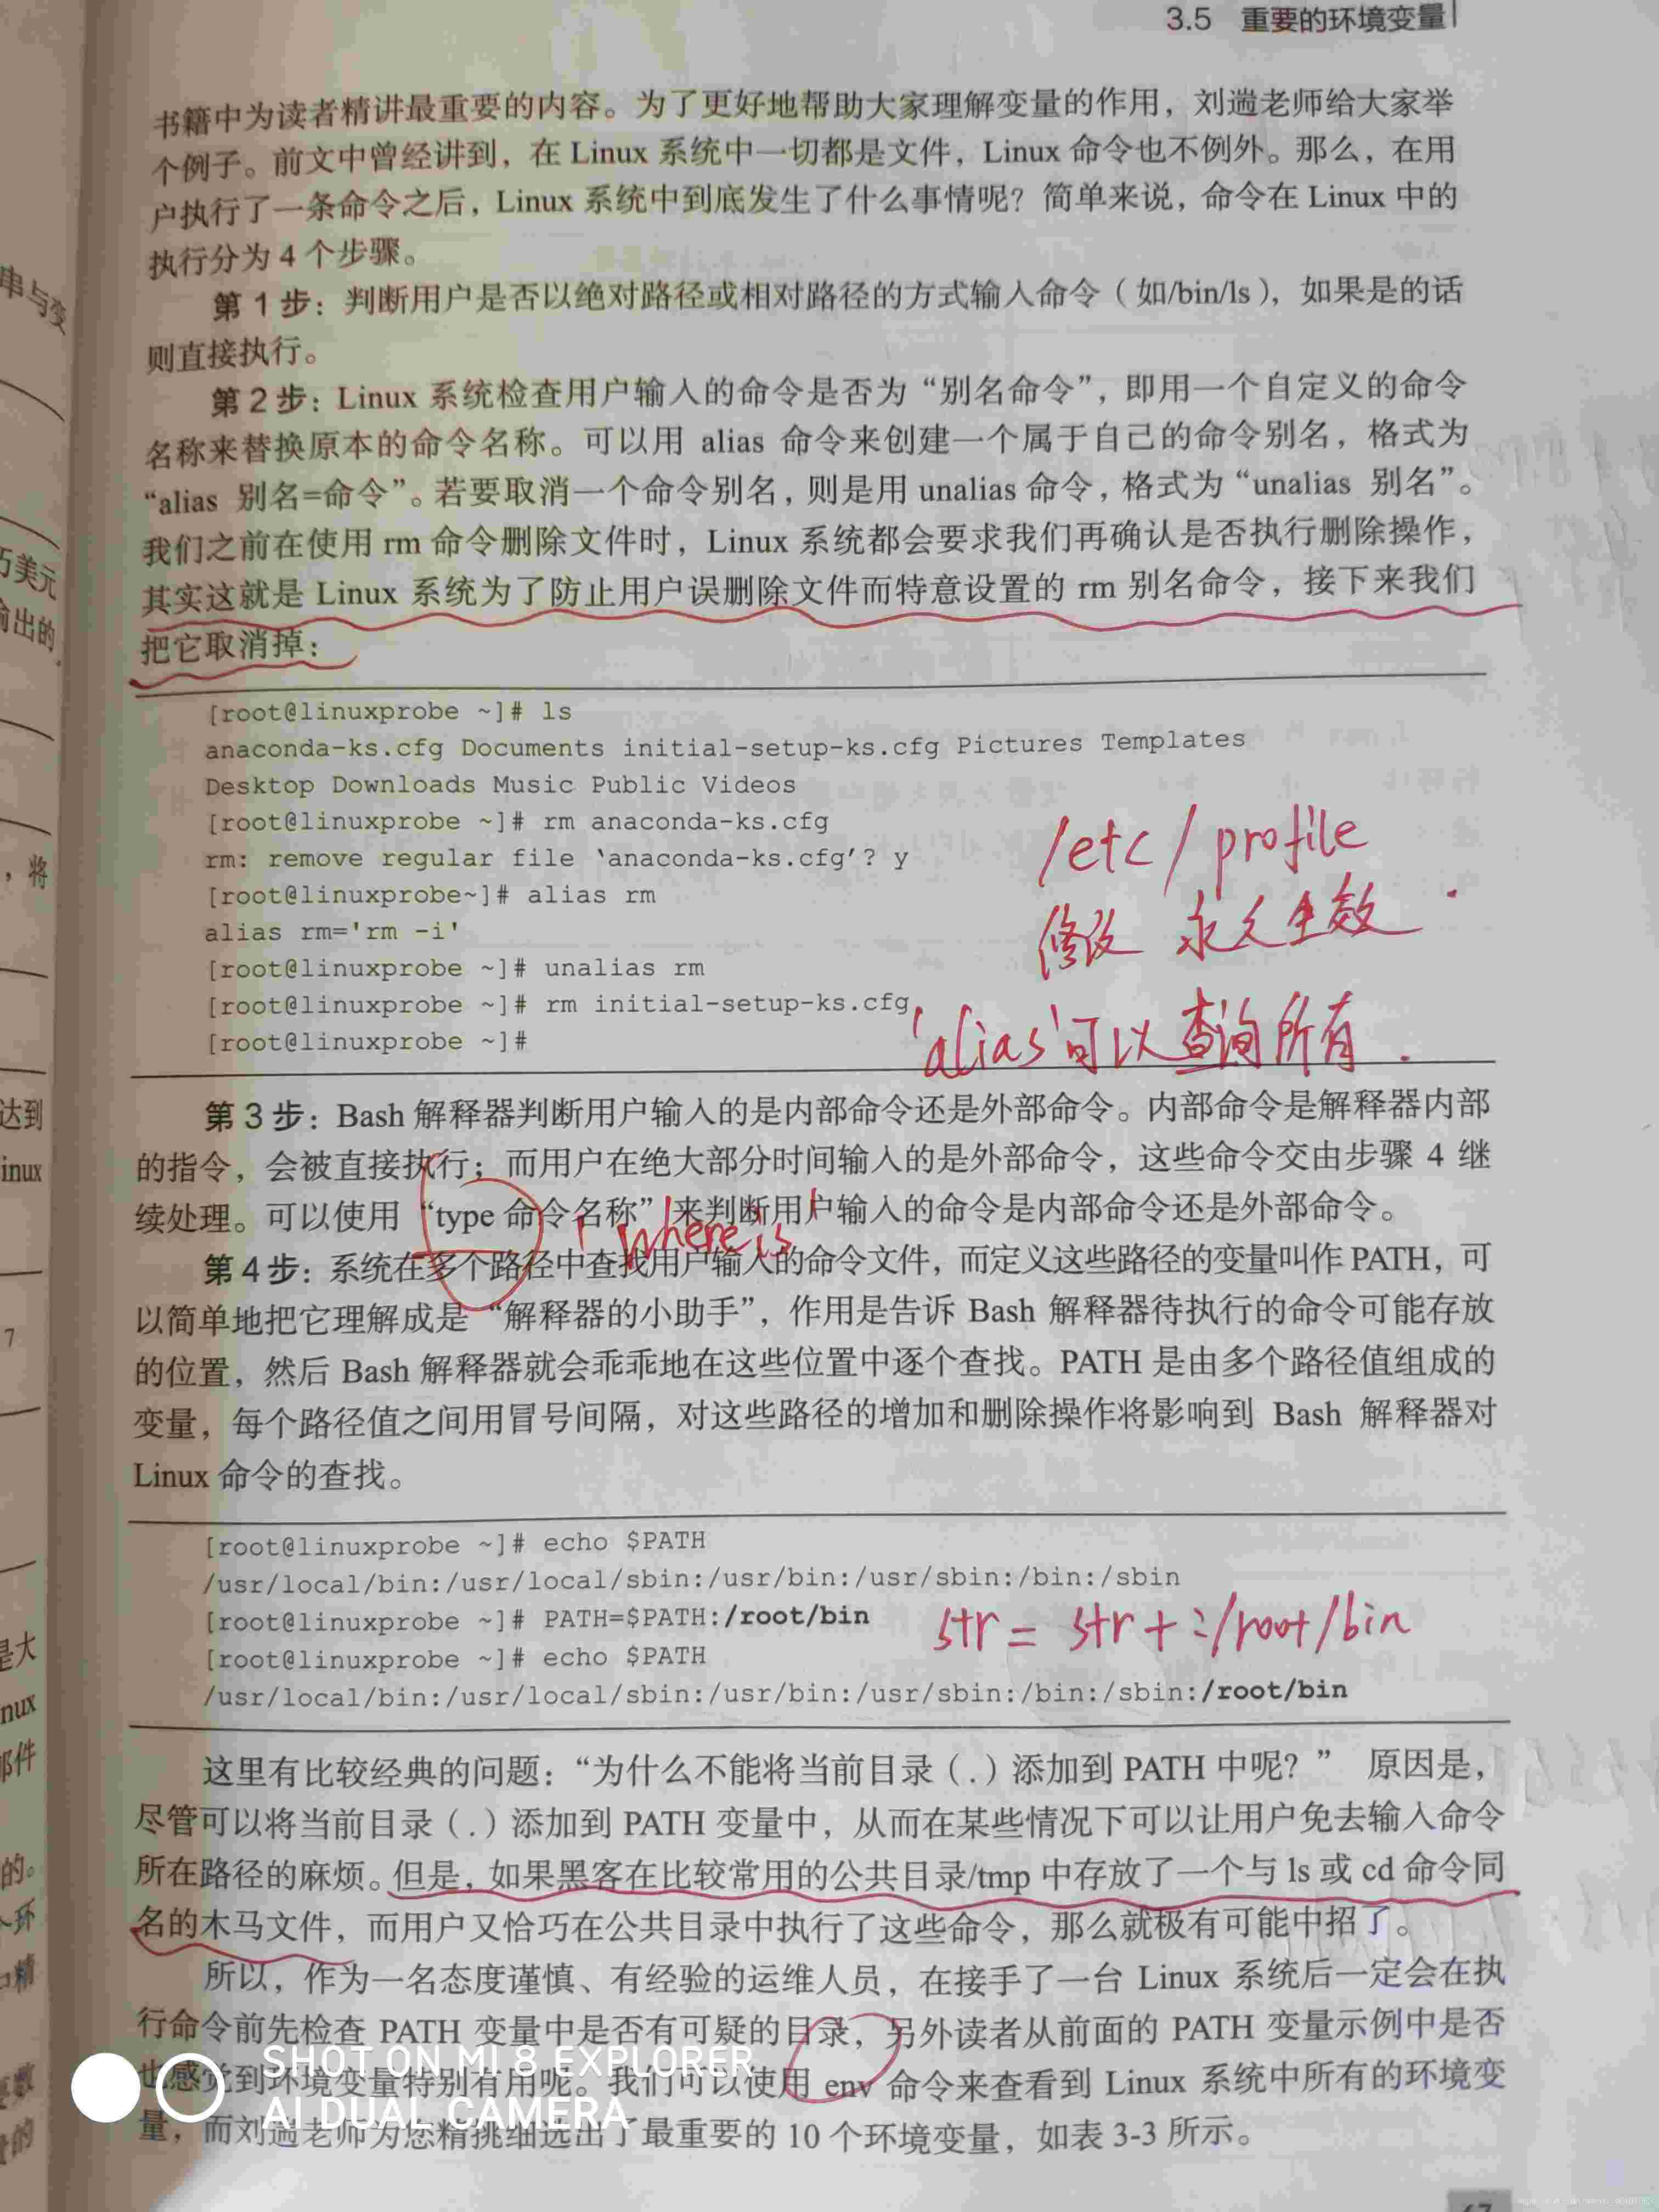 3.5 重要的环境变量
书籍中为读者精讲最重要的内容。为了更好地帮助大家理解变量的作用，刘遄老师给大家举
个例子。前文中曾经讲到，在 Linux 系统中一切都是文件，Linux 命令也不例外。那么，在用
户执行了一条命令之后，Linux 系统中到底发生了什么事情呢？简单来说，命令在 Linux 中的
执行分为 4 个步骤。
第 1 步：判断用户是否以绝对路径或相对路径的方式输入命令（如/bin/ls），如果是的话
则直接执行。
第 2 步：Linux 系统检查用户输入的命令是否为“别名命令”，即用一个自定义的命令
名称来替换原本的命令名称。可以用 alias 命令来创建一个属于自己的命令别名，格式为
“alias 别名=命令”。若要取消一个命令别名，则是用 unalias 命令，格式为“unalias 别名”。
我们之前在使用 rm 命令删除文件时，Linux 系统都会要求我们再确认是否执行删除操作，
其实这就是 Linux 系统为了防止用户误删除文件而特意设置的 rm 别名命令，接下来我们
把它取消掉：
[root@linuxprobe ~]# ls
anaconda-ks.cfg Documents initial-setup-ks.cfg Pictures Templates
Desktop Downloads Music Public Videos
[root@linuxprobe ~]# rm anaconda-ks.cfg
rm: remove regular file ‘anaconda-ks.cfg’? y
[root@linuxprobe~]# alias rm
alias rm='rm -i'
[root@linuxprobe ~]# unalias rm
[root@linuxprobe ~]# rm initial-setup-ks.cfg
[root@linuxprobe ~]#
/etc/profile
修改 永久生效.
'alias'可以查询所有.
第 3 步：Bash 解释器判断用户输入的是内部命令还是外部命令。内部命令是解释器内部
的指令，会被直接执行；而用户在绝大部分时间输入的是外部命令，这些命令交由步骤 4 继
续处理。可以使用“type 命令名称”来判断用户输入的命令是内部命令还是外部命令。
'whereis'
第 4 步：系统在多个路径中查找用户输入的命令文件，而定义这些路径的变量叫作 PATH，可
以简单地把它理解成是“解释器的小助手”，作用是告诉 Bash 解释器待执行的命令可能存放
的位置，然后 Bash 解释器就会乖乖地在这些位置中逐个查找。PATH 是由多个路径值组成的
变量，每个路径值之间用冒号间隔，对这些路径的增加和删除操作将影响到 Bash 解释器对
Linux 命令的查找。
[root@linuxprobe ~]# echo $PATH
/usr/local/bin:/usr/local/sbin:/usr/bin:/usr/sbin:/bin:/sbin
[root@linuxprobe ~]# PATH=$PATH:/root/bin
str = str + :/root/bin
[root@linuxprobe ~]# echo $PATH
/usr/local/bin:/usr/local/sbin:/usr/bin:/usr/sbin:/bin:/sbin:/root/bin
这里有比较经典的问题：“为什么不能将当前目录（.）添加到 PATH 中呢？” 原因是，
尽管可以将当前目录（.）添加到 PATH 变量中，从而在某些情况下可以让用户免去输入命令
所在路径的麻烦。但是，如果黑客在比较常用的公共目录/tmp 中存放了一个与 ls 或 cd 命令同
名的木马文件，而用户又恰巧在公共目录中执行了这些命令，那么就极有可能中招了。
所以，作为一名态度谨慎、有经验的运维人员，在接手了一台 Linux 系统后一定会在执
行命令前先检查 PATH 变量中是否有可疑的目录，另外读者从前面的 PATH 变量示例中是否
也感觉到环境变量特别有用呢。我们可以使用 env 命令来查看到 Linux 系统中所有的环境变
量，而刘遄老师为您精挑细选出了最重要的 10 个环境变量，如表 3-3 所示。
SHOT ON MI 8 EXPLORER
AI DUAL CAMERA
串与变
巧美元
输出的
，将
达到
inux
7
是大
nux
部件
的。